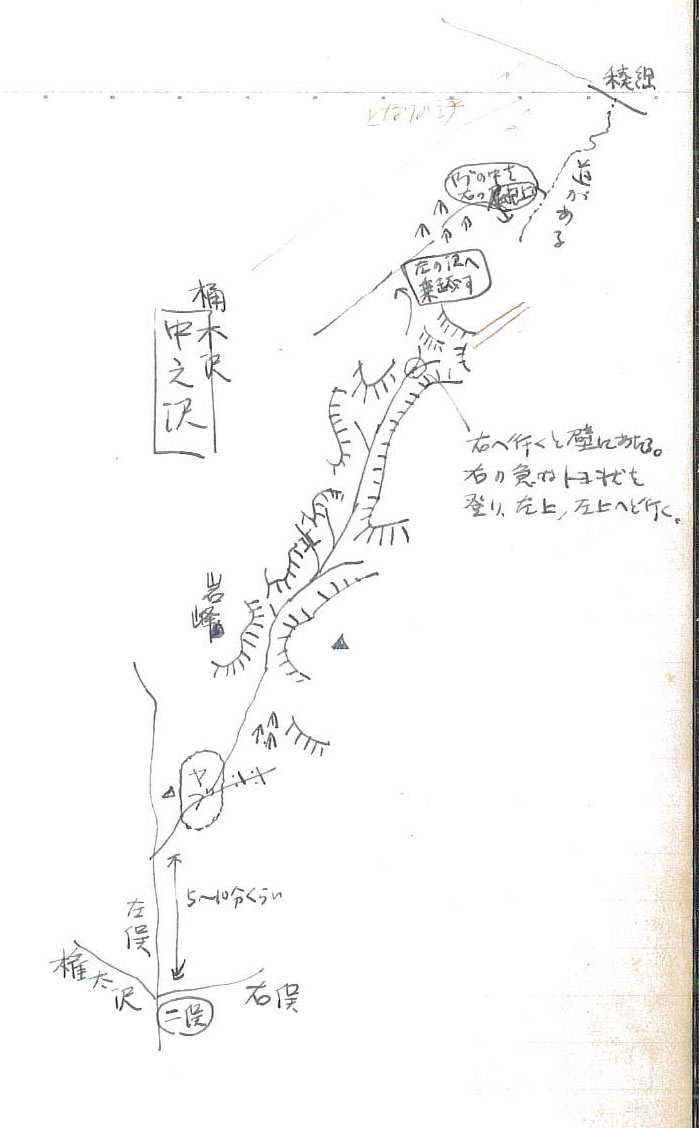 稜線
となりの沢
道がある
ヤブの中を
右の
左の沢へ
乗越す
桶木沢
中之沢
右へ行くと壁にあたる。
右の急なトヨ状を
登り、左上、左上へと行く。
岩峰
ヤブ
5〜10分くらい
左俣
権太沢
右俣
二俣